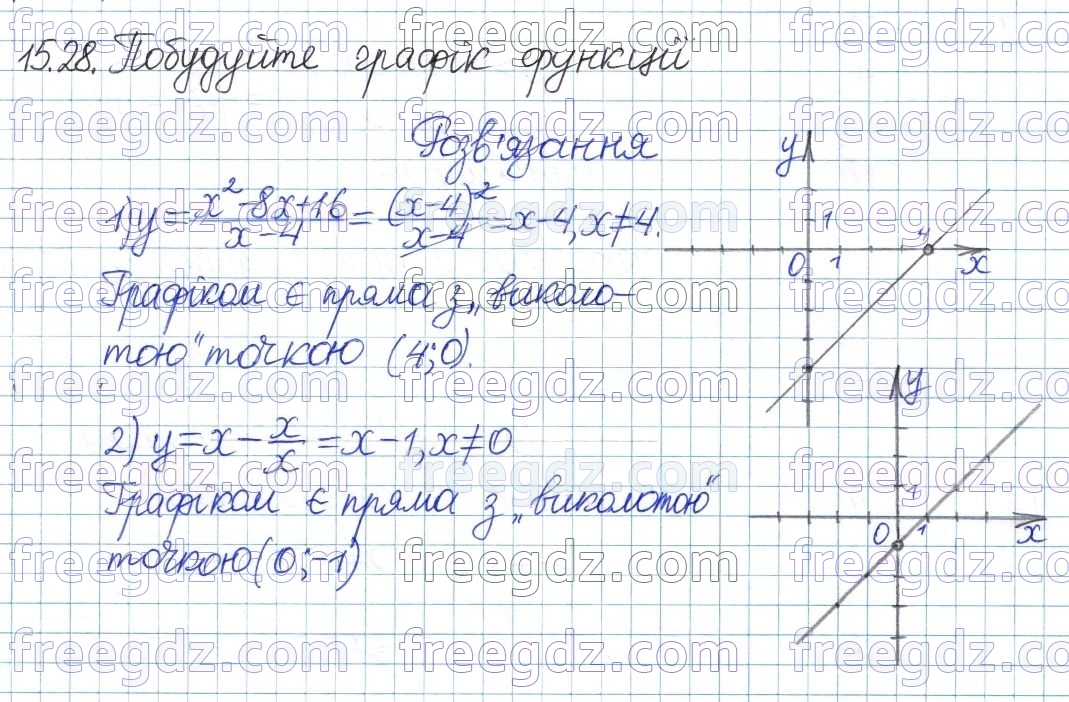 15.28. Побудуйте графік функції
Розв'язання
1) y = x² - 8x + 16 / x - 4 = (x - 4)² / x - 4 = x - 4, x ≠ 4.
Графіком є пряма з „виколо-
тою" точкою (4; 0).
2) y = x - x/x = x - 1, x ≠ 0
Графіком є пряма з „виколотою"
точкою (0; -1)
y
1
4
0 1 x
y
1
0 1 x
freegdz.com